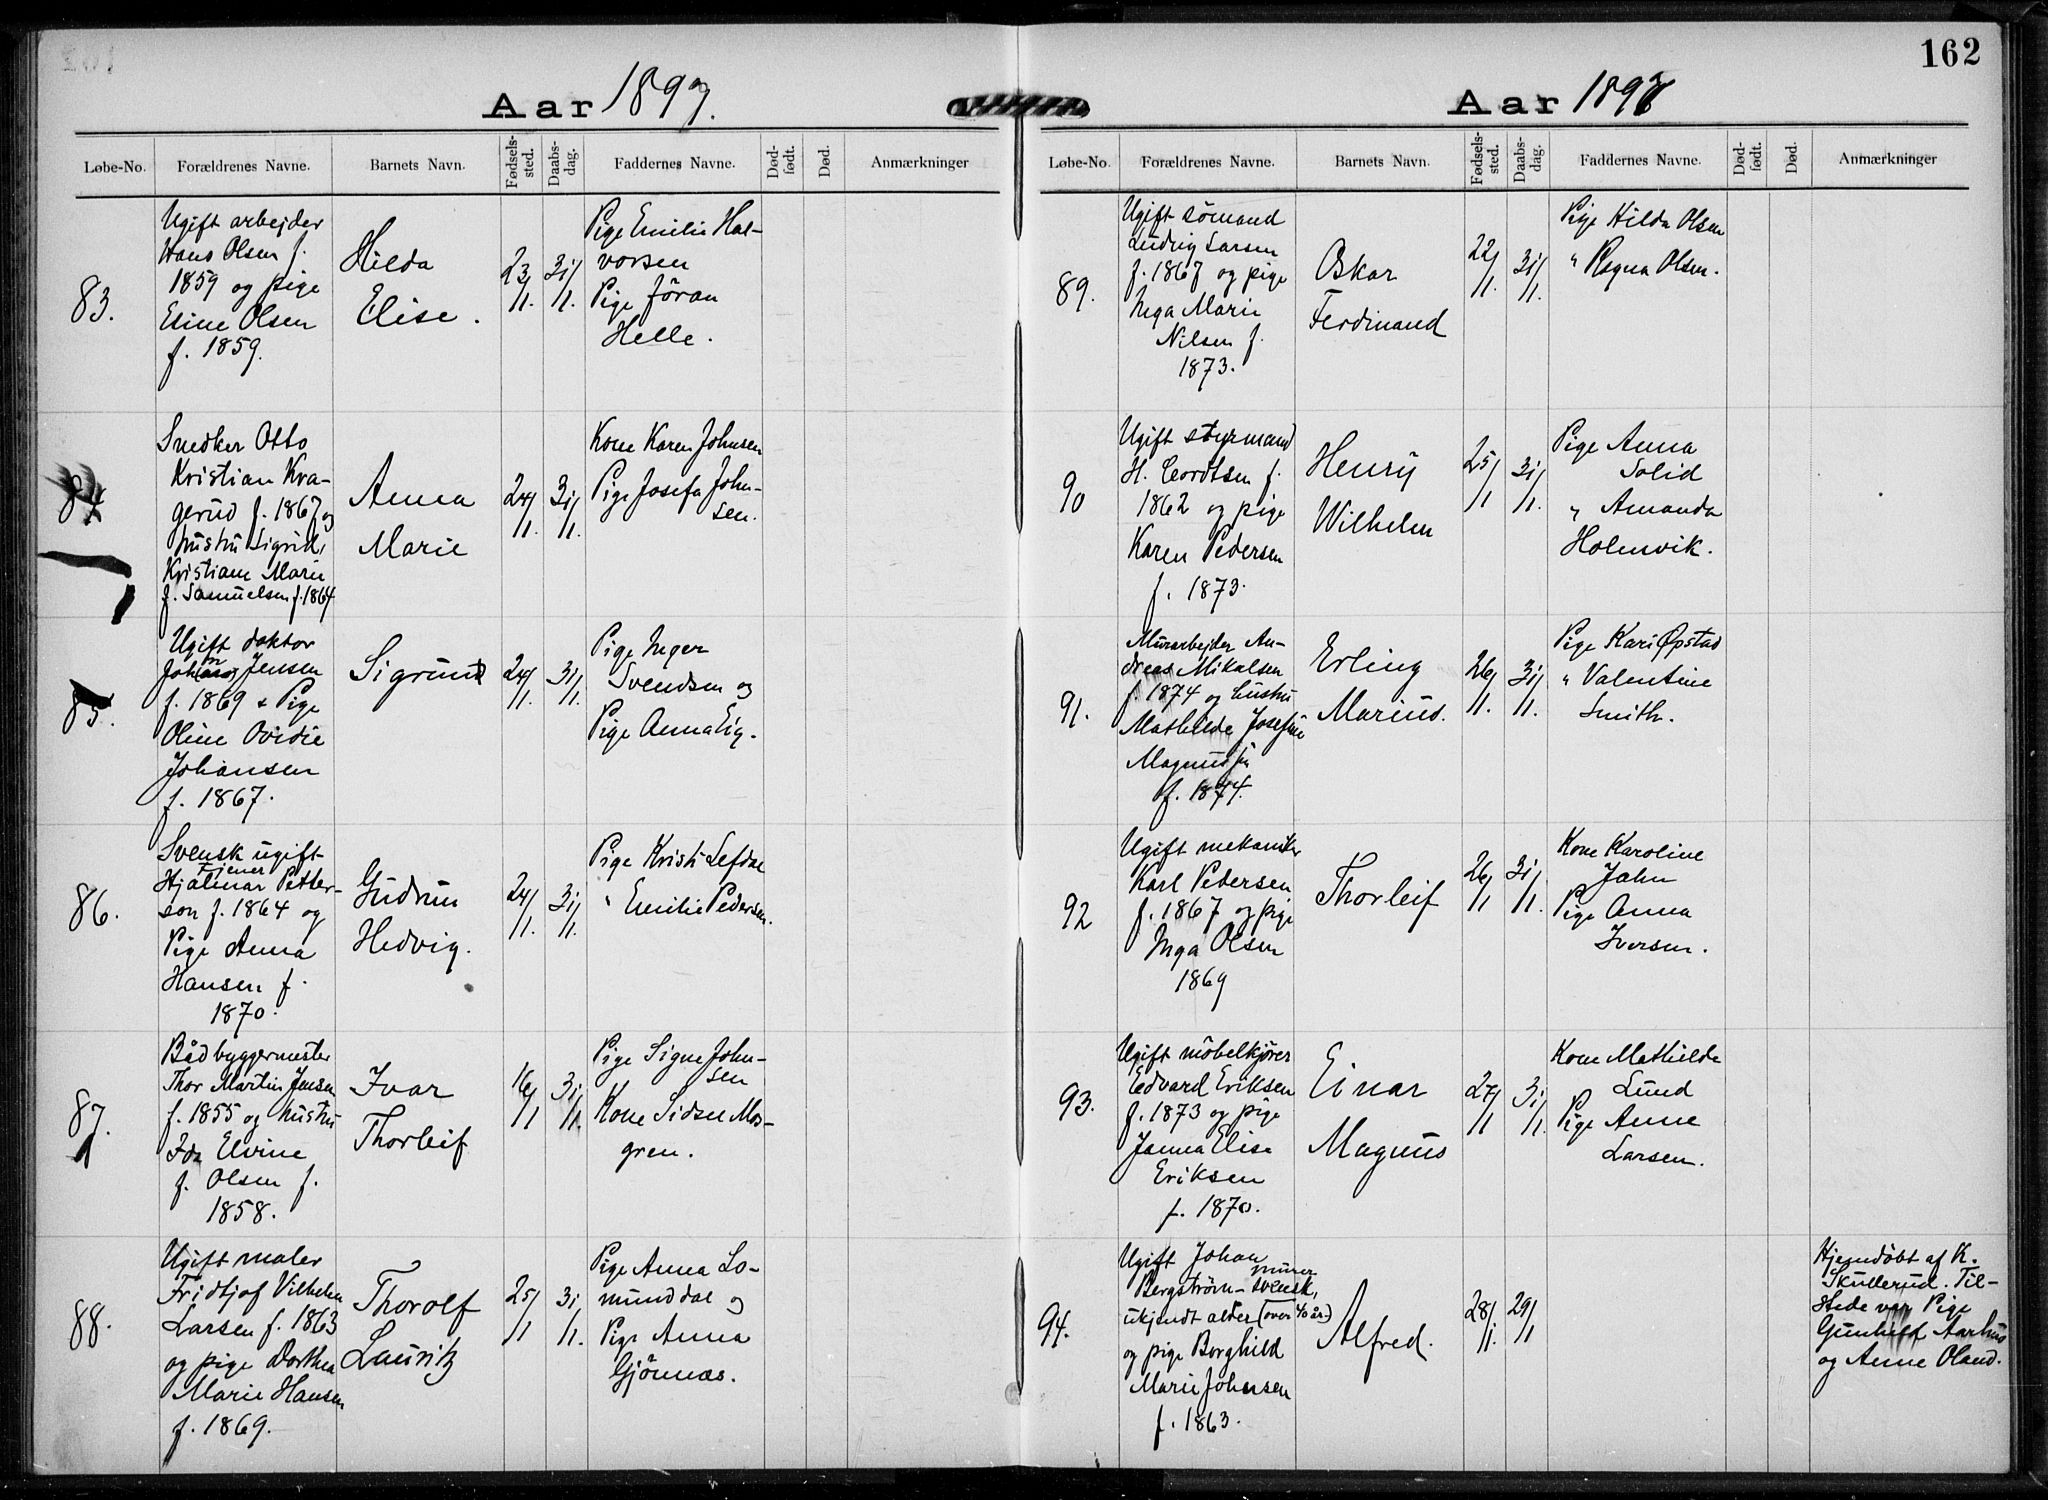 162
Aar 1897.
Løbe-No. Forældrenes Navne. Barnets Navn. Fødsels-sted. Daabs-dag. Faddernes Navne. Død-født. Død. Anmærkninger
83.
Ugift arbejder
Hans Olsen f.
1859 og pige
Eline Olsen
f. 1859.
Hilda
Elise.
23/1.
31/1.
Pige Emilie Hal-
vorsen
Pige Jöran
Helle.
84
Snedker Otto
Kristian Kra-
gerud f. 1867 og
hustru Sigrid
Kristiane Marie
f. Samuelsen f. 1864
Anna
Marie
24/1.
31/1.
Kone Karen Johnsen
Pige Josefa John-
sen.
85.
Ugift doktor
Jensen
f. 1869 & Pige
Oline Ovidie
Johansen
f. 1867.
Sigrund
24/1.
31/1.
Pige Inger
Svendsen og
Pige Anna Eig.
86.
Svensk ugift
Tjener
Hjalmar Petter-
son f. 1864 og
Pige Anna
Hansen f.
1870.
Gudrun
Hedvig.
24/1.
31/1.
Pige Kristi Lefdal
" Emilie Pedersen.
87.
Bådbyggermester
Thor Martin Jensen
f. 1855 og hustru
Ida Elvine
f. Olsen f.
1858.
Ivar
Thorleif
16/1
31/1.
Pige Signe John-
sen
Kone Sidsel Mos-
gren.
88.
Ugift maler
Fridtjof Vilhelm
Larsen f. 1863
og pige Dorthea
Marie Hansen
f. 1869.
Thorolf
Lauritz
25/1
31/1.
Pige Anna Lo-
munddal og
Pige Anna
Gjönnæs.
Aar 1898
Løbe-No. Forældrenes Navne. Barnets Navn. Fødsels-sted. Daabs-dag. Faddernes Navne. Død-født. Død. Anmærkninger
89.
Ugift sömand
Ludvig Larsen
f. 1867 og pige
Inga Marie
Nilsen f.
1873.
Oskar
Ferdinand
22/1.
31/1.
Pige Hilda Olsen
" Ragna Olsen.
90
Ugift styrmand
H. Cordtsen f.
1862 og pige
Karen Pedersen
f. 1873.
Henry
Wilhelm
25/1
31/1.
Pige Anna
Solid
" Amanda
Holmvik.
91.
Murarbejder An-
dreas Mikalsen
f. 1874 og hustru
Mathilde Josefine
f. 1874.
Erling
Marius.
26/1.
31/1.
Pige Kari Øpstad
" Valentine
Smith.
92
Ugift mekaniker
Karl Pedersen
f. 1867 og pige
Inga Olsen
1869
Thorleif
26/1
31/1.
Kone Karoline
Jahn
Pige Anna
Iversen.
93.
Ugift möbelkjører
Edvard Eriksen
f. 1873 og pige
Janna Elise
Eriksen
f. 1870.
Einar
Magnus
27/1
31/1.
Kone Mathilde
Lund
Pige Anne
Larsen.
94.
Ugift Johan
murer
Bergström – svensk,
ukjendt alder (over 40 år)
og pige Borghild
Marie Johnsen
f. 1863.
Alfred.
28/1.
29/1
Hjemdöbt af K.
Skullerud. Til-
stede var Pige
Gunhild Aarhus
og Anne Oland.